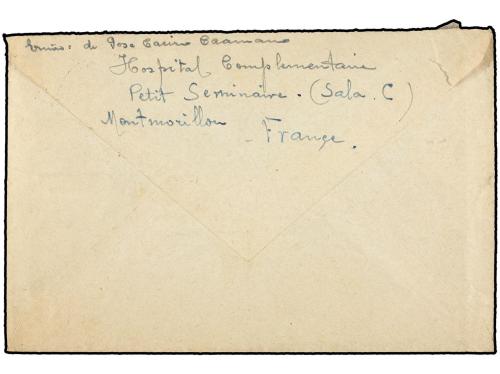 de Jose Caamano
Hospital Complementaire
Petit Seminaire. (Sala. C)
Montmorillon
- France.